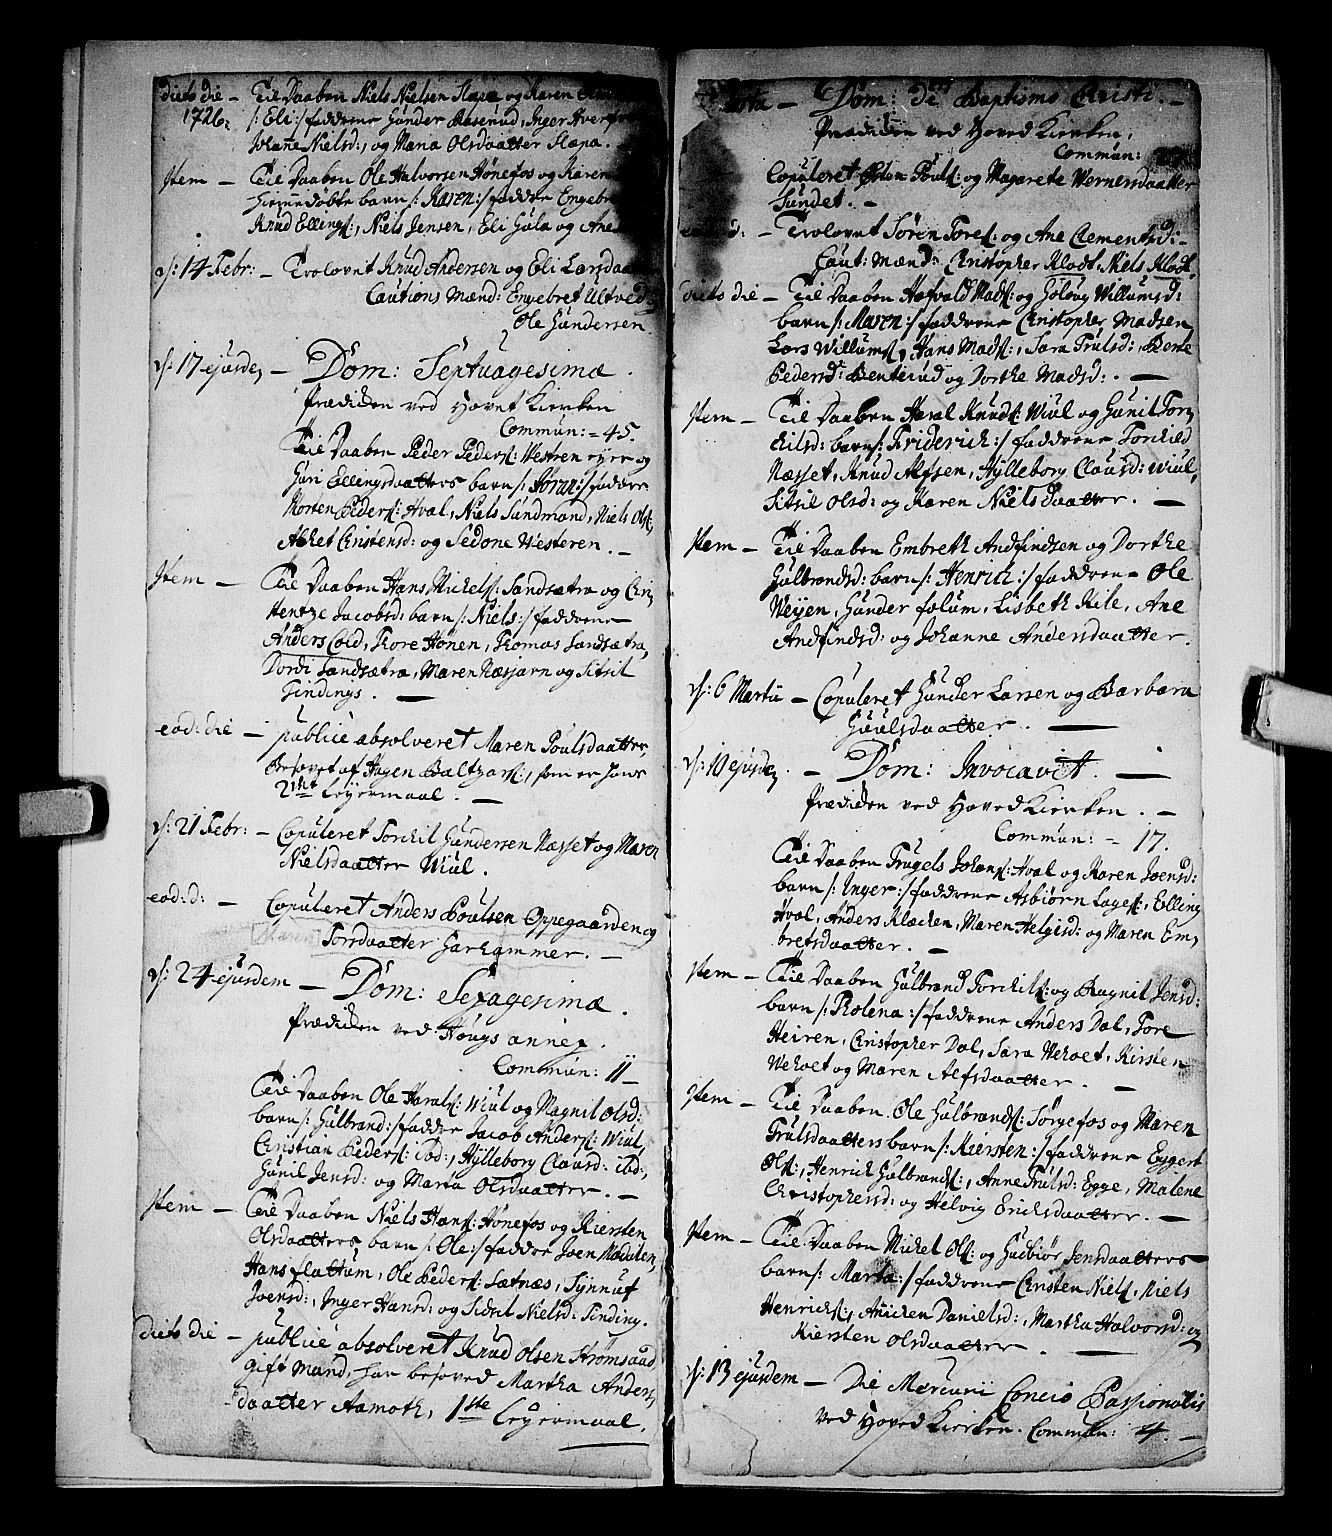 dicto die — Till Daaben Niels Nielsen Slapa og Karen
1726: /: Eli :/ faddrene Gunder Aasenud, Inger
Johane Nielsd:, og Maria Olsdaatter Slapa.
Item — Till Daaben Ole Halvorsen Hønefos og Karen
hiemmedøbte barn /: Karen :/ faddre Engebre
Knud Ellings:, Niels Jensen, Eli Gula og Ane
d: 14 Febr: — Trolovet Knud Andersen og Eli Larsdaa
Cautions Mænd: Engebret Ultved
Ole Gundersen
d: 17 ejusde, — Dom: Septuagesimæ.
Prædiken ved Hovet Kierken
Commun: = 45.
Till Daaben Peder Peders: Westren eyer og
Guri Ellingsdaatters barn /: Søran :/ faddre
Morten Peders: Hval, Niels Sandmand, Niels Ols:
Alhet Cristensd: og Sedone Westeren. —
Item — Till Daaben Hans Michels: Sandsætra og Cri,
Hentze Jacobsd: barn /: Niels :/ faddrene
Anders Cold, Thore Hønen, Thomas Sandsætra,
Dordi Sandsætra, Maren Næsjarn og Sitsil
Gindings. —
eod: die — publice absolveret Maren Poulsdaatter,
Besovet af Hagen Baltzars:, som er hans
2det Leyermaal. —
d: 21 Febr: — Copuleret Torchil Gundersen Næsset og Maren
Nielsdaatter Wiul.
eod: d: — Copuleret Anders Poulsen Oppegaarden og
Maren Torsdaatter Garhammer. —
d: 24 ejusdem — Dom: Sexagesimæ.
Prædiken ved Hougs annex.
Commun: 11 —
Till Daaben Ole Harals: Wiul og Magnil Olsd:
barn /: Gulbrand :/ faddre Jacob Anders: Wiul,
Christian Peders: ibd:, Hylleborg Clausd: ibd:,
Gunil Jensd: og Marta Olsdaatter. —
Item — Till Daaben Niels Hans: Hønefos og Kiersten
Olsdaatters barn /: Ole :/ faddre Joen Modalen,
Hans flattum, Ole Peders: Sætnæs, Synnuf
Joensd:, Inger Hansd: og Sidsil Nielsd: Finding.
dicto die — publice absolveret Knud Olsen Strømsaad
gift Mand, har besoved Martha Anders,
daatter Aamoth, 1ste Leyermaal.
Dom: de Baptismo Cristi. —
Prædiken ved Hoved Kierken,
Commun:
Copuleret Østen Pouls: og Magarete Wernersdaatter
Sundet. —
d: — Trolovet Søren Tores: og Ane Clementsd: —
Caut: Mænd: Cristopher Klodt, Niels Klodt.
dicto die — Till Daaben Hafvald Mads: og Goloug Willumsd:
barn /: Maren :/ faddrene Cristopher Madsen,
Lars Willums:, Hans Mads:, Sara Trulsd:, Berte
Pedersd: Benterud og Dorthe Madsd: . —
Item — Till Daaben Haral Knuds: Wiul og Gunil Tor,
kilsd: barn /: Friderich :/ faddrene Torchild
Næsset, Knud Alfsen, Hylleborg Clausd: Wiul,
Sitsil Olsd: og Karen Nielsdaatter. —
Item — Till Daaben Embreth Andfindsen og Dorthe
Gulbrandsd: barn /: Henrich :/ faddrene Ole
Weyen, Gunder folum, Lisbeth Kile, Ane
Andfindsd: og Johanne Andersdaatter.
d: 6 Martii — Copuleret Gunder Larsen og Barbara
Guulsdaatter. —
d: 10 ejusde, — Dom: Invocavit. —
Prædiken ved Hoved Kierken. —
Commun: = 17.
Till Daaben Trugels Johans: Hval og Karen Joensd:
barn /: Inger :/ faddrene Asbiørn Lages:, Elling
Hval, Anders Kladen, Maren Helgisd: og Maren Em,
bretsdaatter. —
Item — Till Daaben Gulbrand Torchils: og Ragnil Jensd:
barn /: Tholena :/ faddrene Anders Dal, Tore
Heiren, Cristopher Dal, Sara Veholt, Kirsten
Veholt og Maren Alfsdaatter. —
Item — Till Daaben Ole Gulbrands: Sørgefos og Maren
Trulsdaatters barn /: Kiersten :/ faddrene Eggert
Ols:, Henrich Gulbrands:, Anne Trulsd: Egge, Malene
Christophersd: og Helvig Erichsdaatter. —
Item — Till Daaben Michel Ols: og Gudbiør Jensdaatters
barn /: Marta :/ faddrene Cristen Niels:, Niels
Henrichs:, Anichen Danielsd:, Martha Halvorsd: og
Kiersten Olsdaatter. —
d: 13 ejusdem — Die Mercurii Concio Passionalis
ved Hoved Kierken. Commun: 4. —